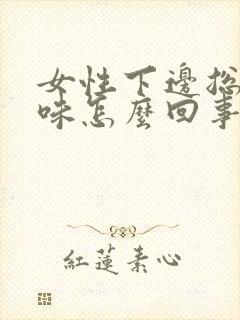 女性下邊总
味怎麼回事
紅蓮素心